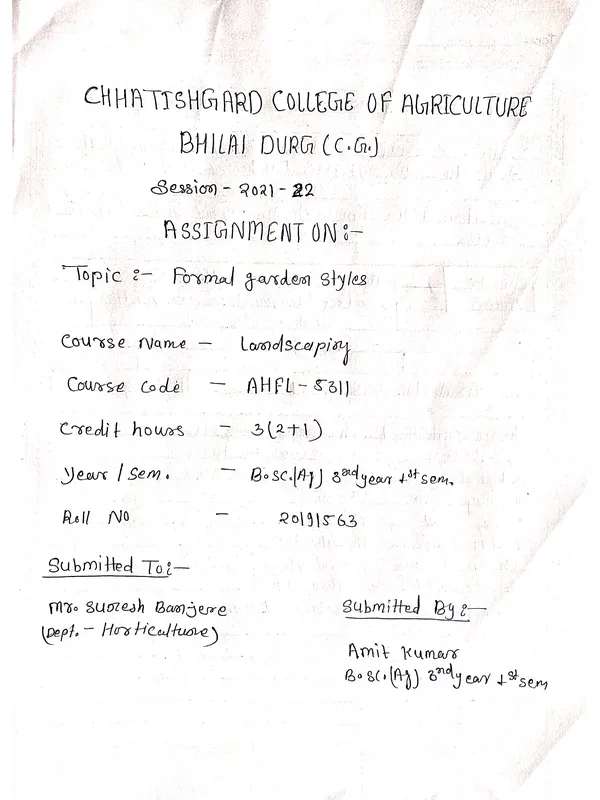 CHHATTSHGARD COLLEGE OF AGRICULTURE
BHILAI DURG (C.G.)
Session - 2021-22
ASSIGNMENT ON :-
Topic :- Formal garden styles
Course Name - Landscaping
Course Code - AHFL-5311
Credit hours - 3(2+1)
Year / Sem. - B.SC.(Ag) 3rd year 1st sem.
Roll No - 20191563
Submitted To:-
Mr. Suresh Banjere
(Dept. - Horticulture)
Submitted By :-
Amit Kumar
B.SC.(Ag) 3rd year 1st sem